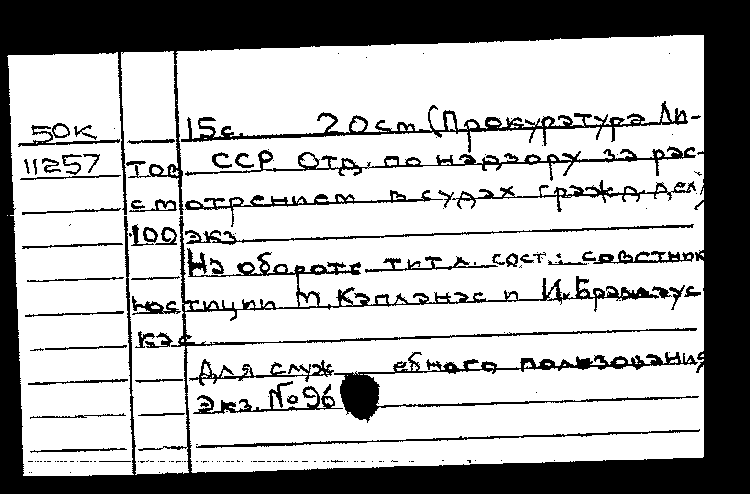 50К 15с. 20см (Прокуратура Ли-
11257 тов. ССР. Отд. по надзору за рас-
смотрением в судах гражд. дел)
100 экз.
На обороте тит. л. сост.: советник
юстиции М. Капланас и И.
кас.
Для служебного пользования
Экз. №96